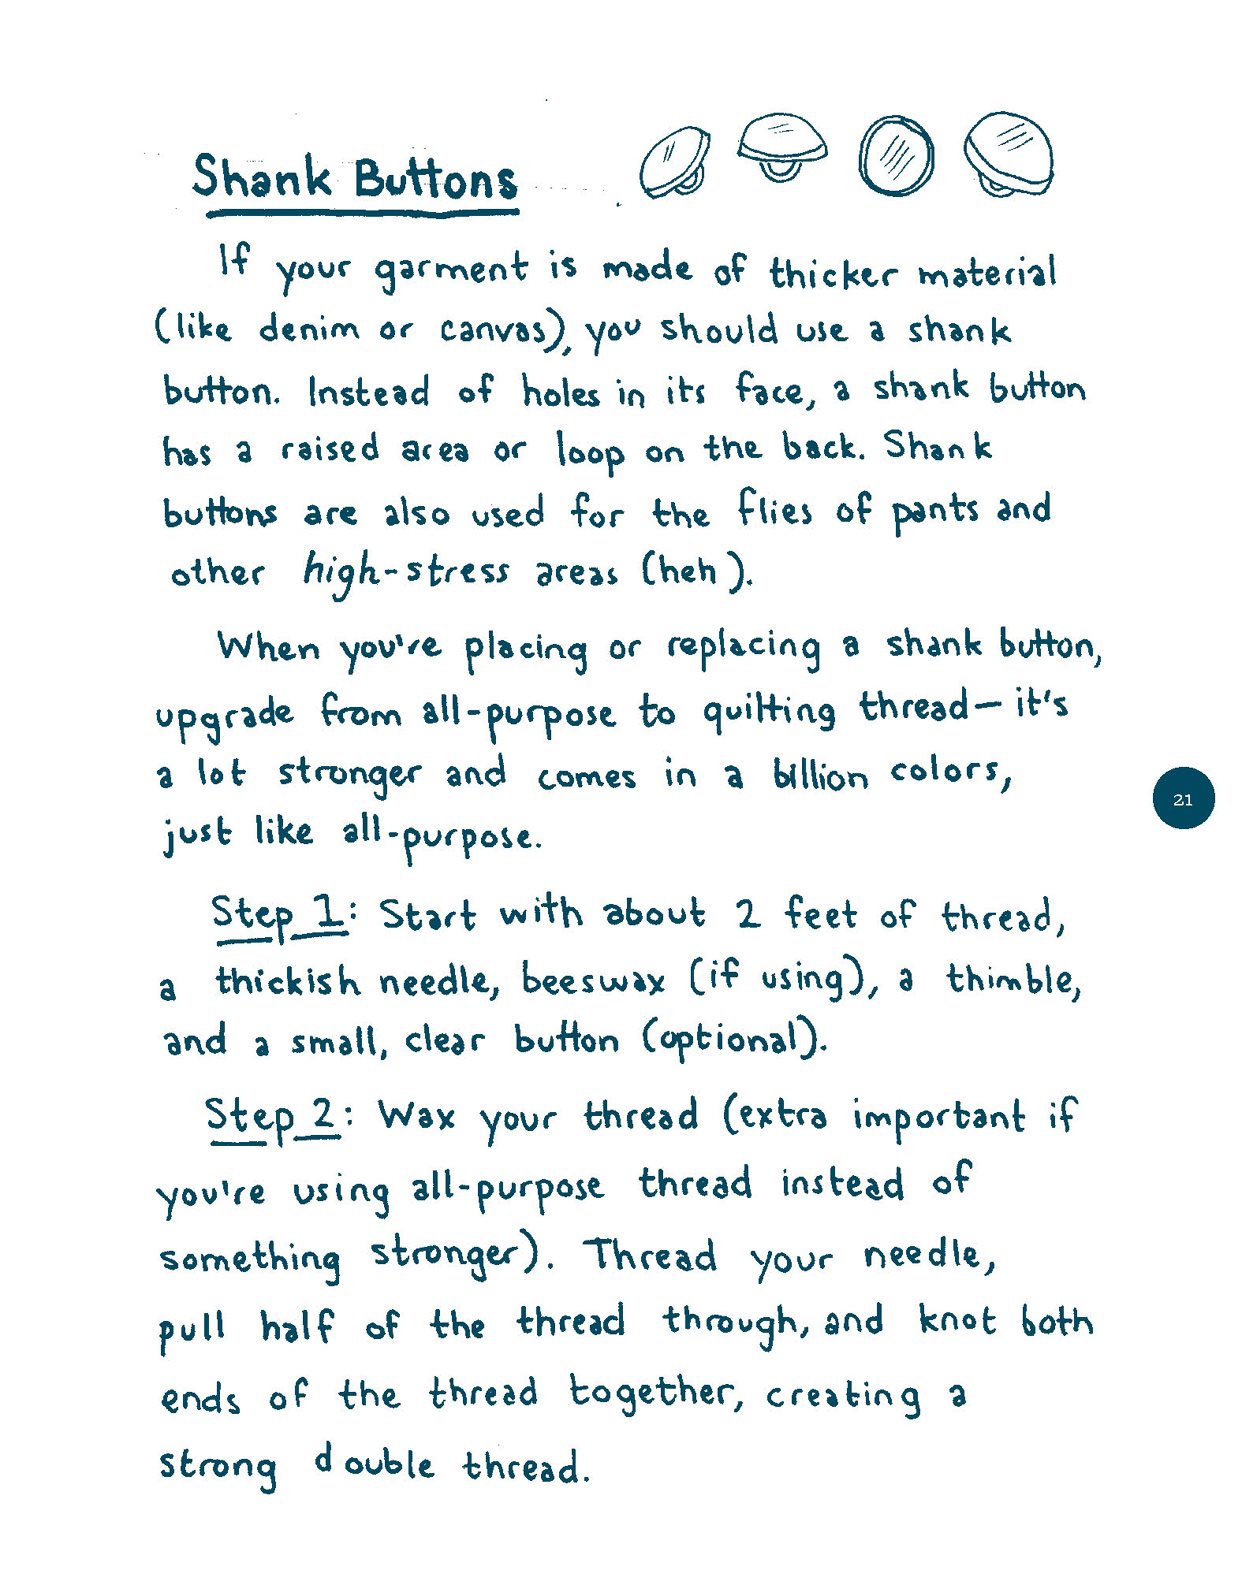 Shank Buttons
If your garment is made of thicker material
(like denim or canvas), you should use a shank
button. Instead of holes in its face, a shank button
has a raised area or loop on the back. Shank
buttons are also used for the flies of pants and
other high-stress areas (heh).
When you're placing or replacing a shank button,
upgrade from all-purpose to quilting thread—it's
a lot stronger and comes in a billion colors,
just like all-purpose.
21
Step 1: Start with about 2 feet of thread,
a thickish needle, beeswax (if using), a thimble,
and a small, clear button (optional).
Step 2: Wax your thread (extra important if
you're using all-purpose thread instead of
something stronger). Thread your needle,
pull half of the thread through, and knot both
ends of the thread together, creating a
strong double thread.